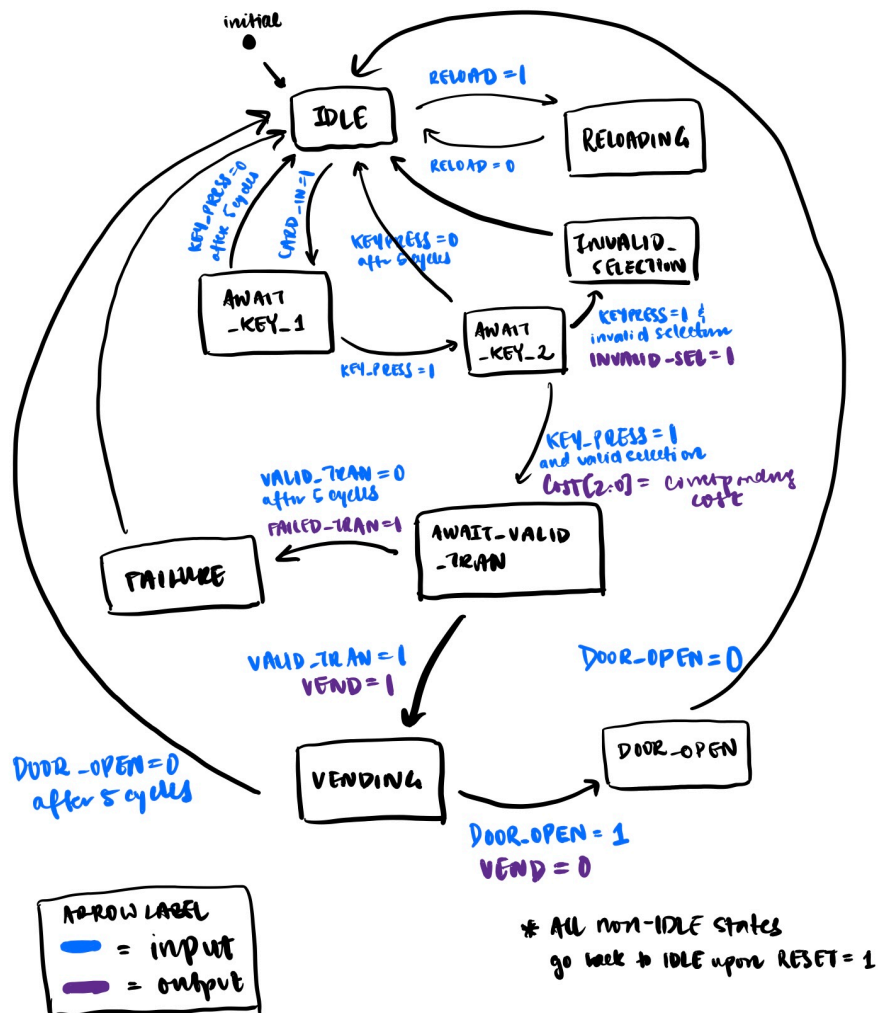 initial
IDLE
RELOAD = 1
RELOADING
RELOAD = 0
KEY_PRESS=0
after 5 cycles
CARD_IN=1
KEYPRESS=0
aftr 5 cycles
INVALID_
SELECTION
AWAIT
_KEY_1
AWAIT
_KEY_2
KEYPRESS=1 &
invalid selection
INVALID_SEL=1
KEY_PRESS=1
KEY_PRESS=1
and valid selection
COST[2:0] = corresponding
cost
VALID_TRAN=0
after 5 cycles
FAILED_TRAN=1
AWAIT_VALID
_TRAN
FAILURE
VALID_TRAN=1
VEND=1
DOOR_OPEN=0
DOOR_OPEN
DOOR_OPEN=0
after 5 cycles
VENDING
DOOR_OPEN = 1
VEND = 0
ARROW LABEL
= input
= output
* All non-IDLE states
go back to IDLE upon RESET = 1